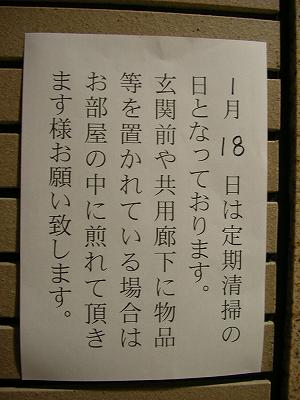 1月18日は定期清掃の
日となっております。
玄関前や共用廊下に物品
等を置かれている場合は
お部屋の中に煎れて頂き
ます様お願い致します。